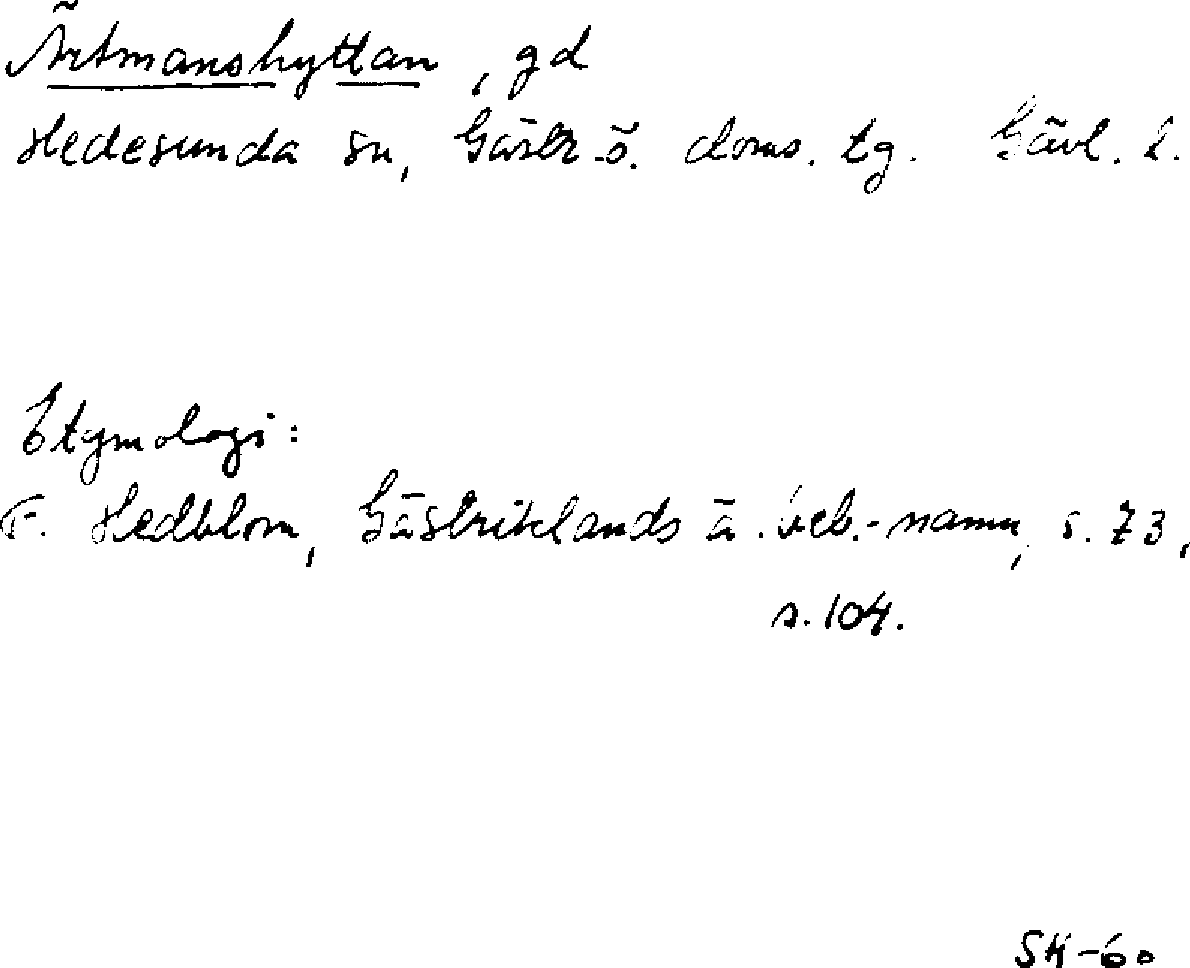 Ärtmanshyttan, gd
Hedesunda sn, Gästr.ö. doms. tg. Gävl. l.
Etymologi:
F. Hedblom, Gästriklands ä. beb.-namn, s. 73,
s. 104.
SK-60